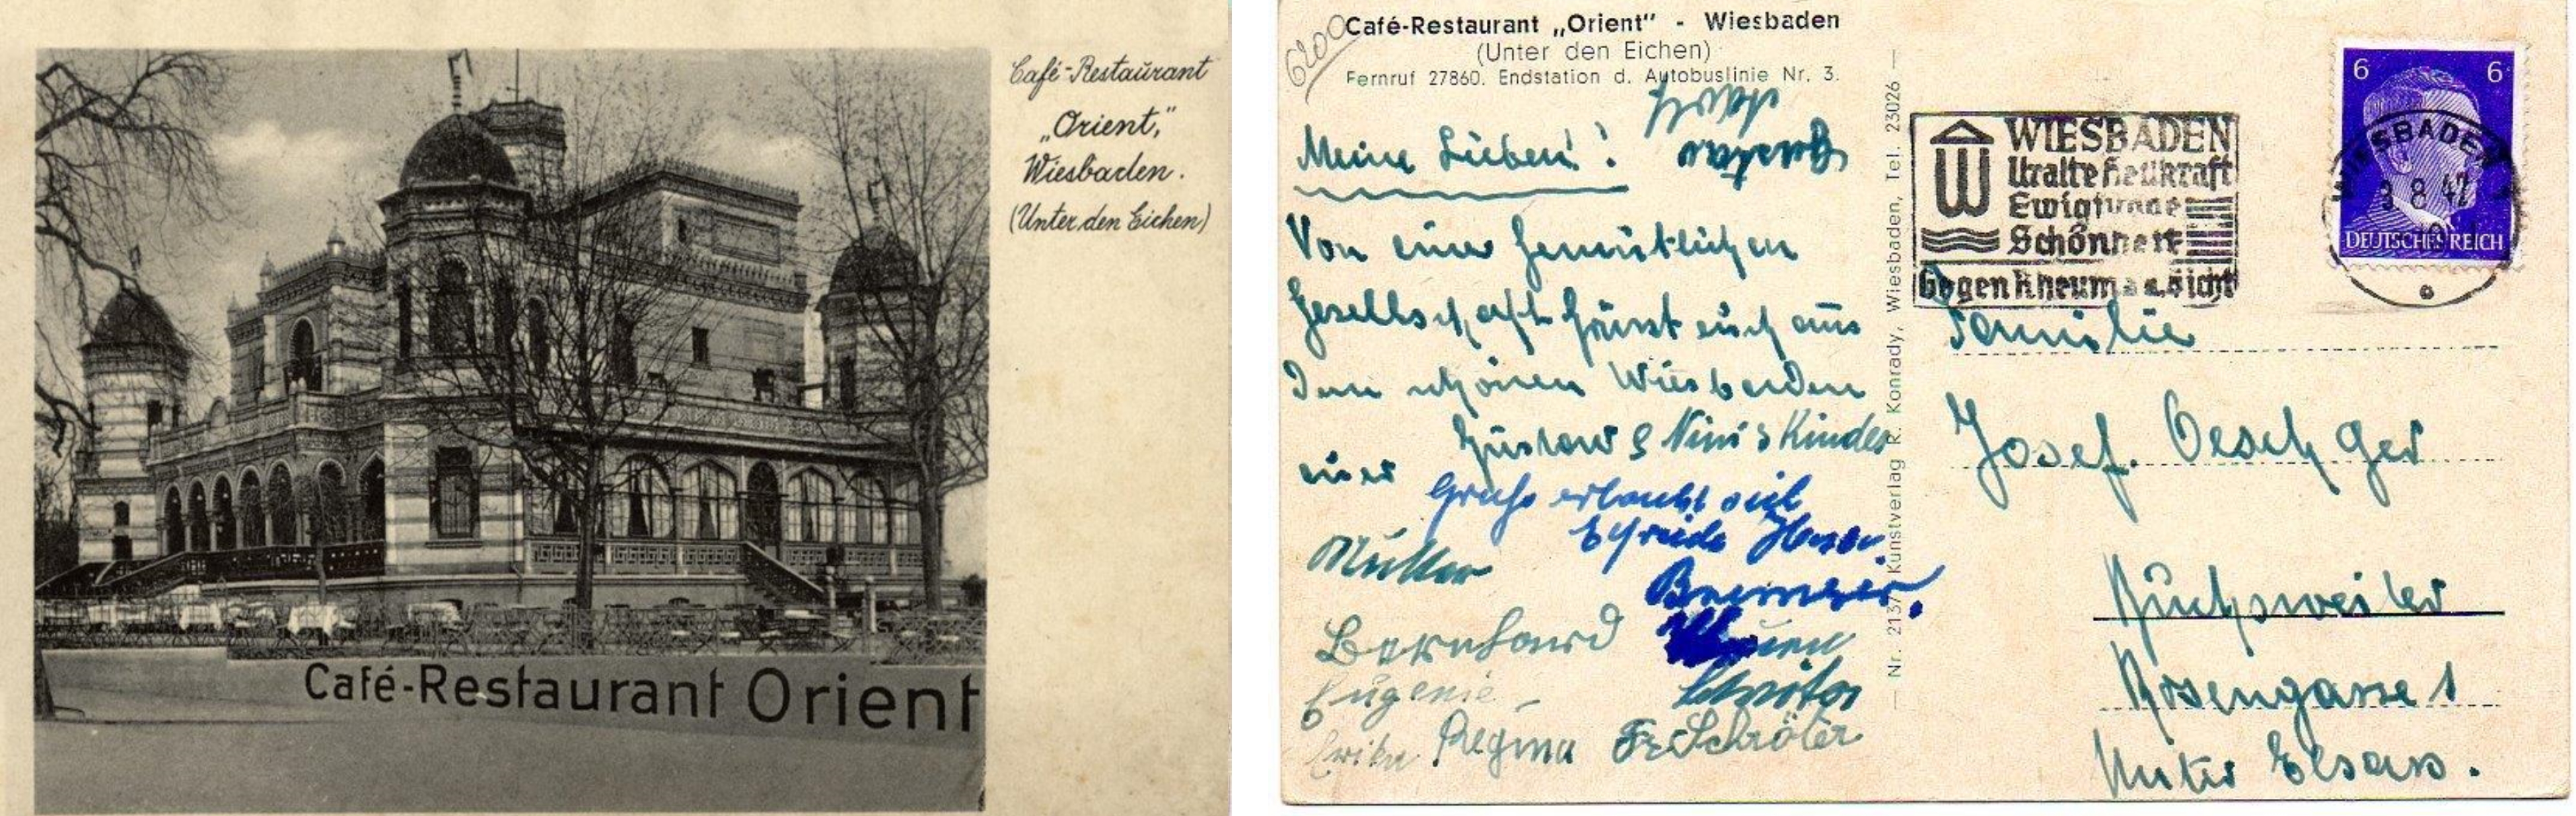 Café-Restaurant
„Orient,"
Wiesbaden.
(Unter den Eichen)
Café-Restaurant Orient
6200
Café-Restaurant „Orient" - Wiesbaden
(Unter den Eichen)
Fernruf 27860. Endstation d. Autobuslinie Nr. 3.
Meine Lieben!
Von einer gemütlichen
Gesellschaft grüsst euch aus
dem schönen Wiesbaden
euer Gustav & Nini & Kinder
Gruß erlaubt sich
Elfriede
Müller
Bernhard
Eugenie
Erika Regina Fr. Schröter
Nr. 2137 Kunstverlag R. Konrady, Wiesbaden, Tel. 23026
WIESBADEN
Uralte Heilkraft
Ewigjunge
Schönheit
Gegen Rheuma u. Gicht
6 6
DEUTSCHES REICH
WIESBADEN
8 42
Familie
Josef Oeschger
Buchsweiler
Rosengasse 1
Unter Elsass.